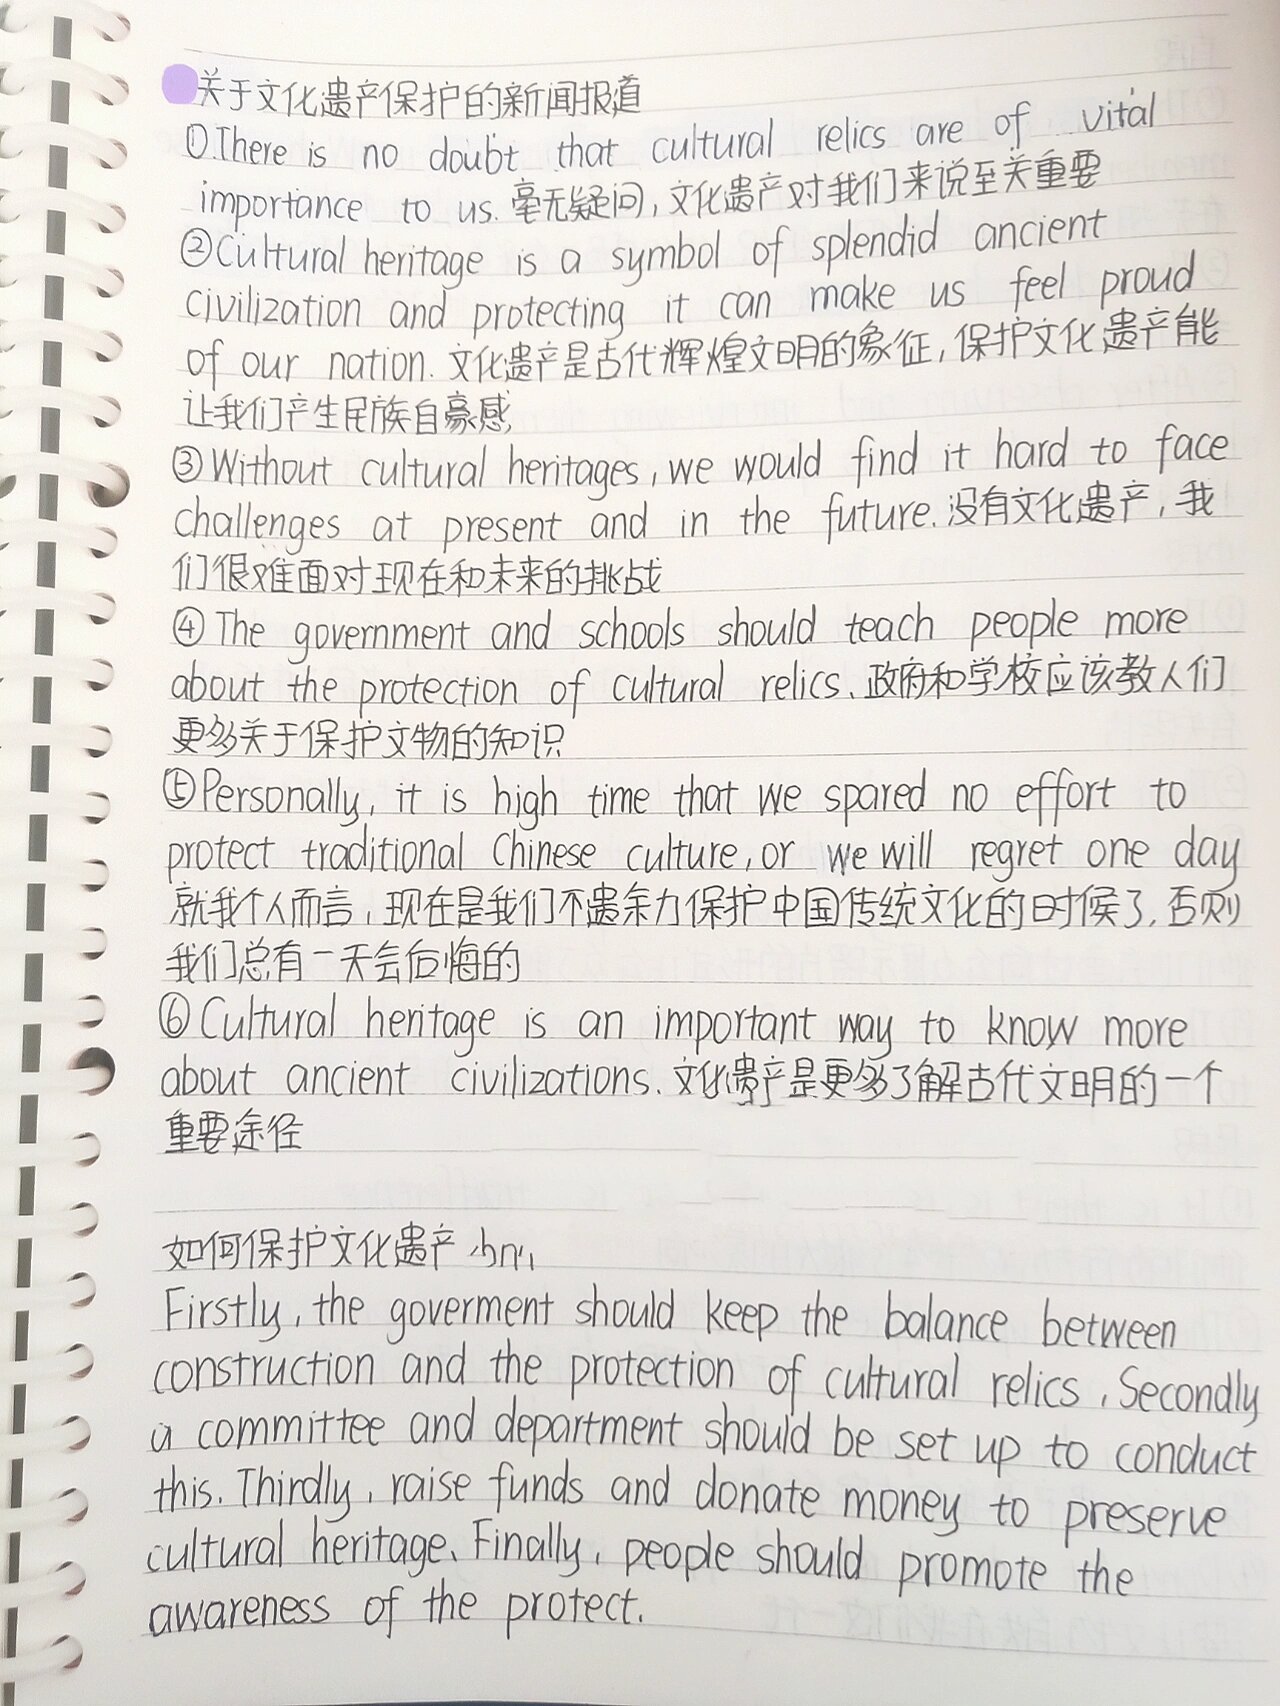 关于文化遗产保护的新闻报道
①There is no doubt that cultural relics are of vital
importance to us. 毫无疑问，文化遗产对我们来说至关重要
②Cultural heritage is a symbol of splendid ancient
civilization and protecting it can make us feel proud
of our nation. 文化遗产是古代辉煌文明的象征，保护文化遗产能
让我们产生民族自豪感
③Without cultural heritages, we would find it hard to face
challenges at present and in the future. 没有文化遗产，我
们很难面对现在和未来的挑战
④The government and schools should teach people more
about the protection of cultural relics. 政府和学校应该教人们
更多关于保护文物的知识
⑤Personally, it is high time that we spared no effort to
protect traditional Chinese culture, or we will regret one day
就我个人而言，现在是我们不遗余力保护中国传统文化的时候了，否则
我们总有一天会后悔的
⑥Cultural heritage is an important way to know more
about ancient civilizations. 文化遗产是更多了解古代文明的一个
重要途径
如何保护文化遗产
Firstly, the goverment should keep the balance between
construction and the protection of cultural relics. Secondly
a committee and department should be set up to conduct
this. Thirdly, raise funds and donate money to preserve
cultural heritage. Finally, people should promote the
awareness of the protect.